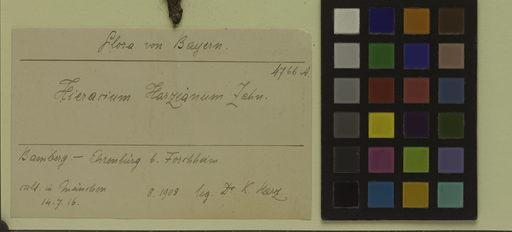 Flora von Bayern.
4766 A.
Hieracium Harzianum Zahn.
Bamberg — Ehrenbürg b. Forchheim
cult. in München 8. 1908 leg. Dr. K. Harz.
14.7.16.